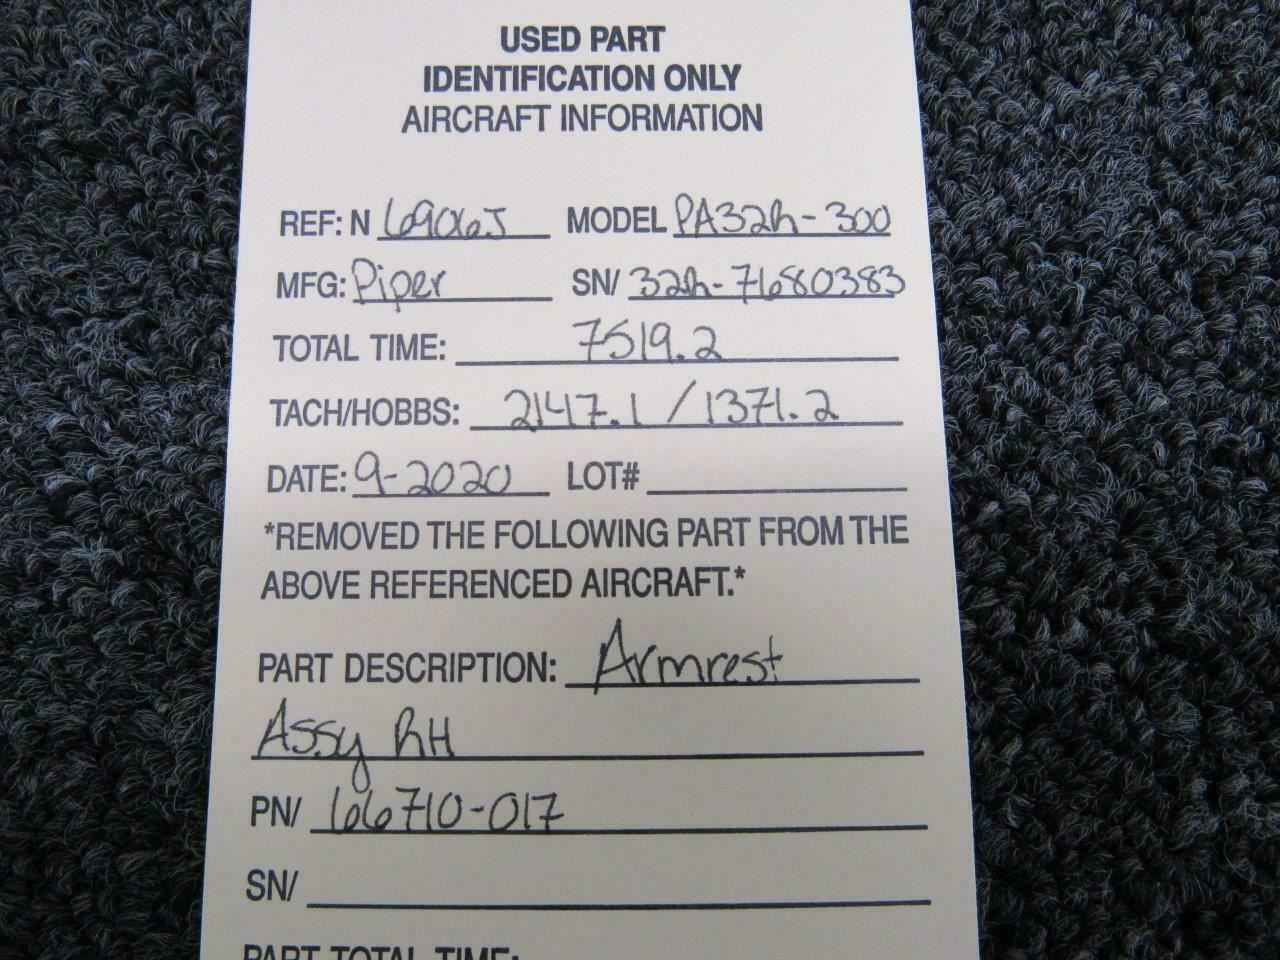 USED PART
IDENTIFICATION ONLY
AIRCRAFT INFORMATION
REF: N 6906J MODEL PA32R-300
MFG: Piper SN/ 32R-7680383
TOTAL TIME: 7519.2
TACH/HOBBS: 2147.1 / 1371.2
DATE: 9-2020 LOT#
*REMOVED THE FOLLOWING PART FROM THE
ABOVE REFERENCED AIRCRAFT.*
PART DESCRIPTION: Armrest
Assy RH
PN/ 66710-017
SN/
PART TOTAL TIME: